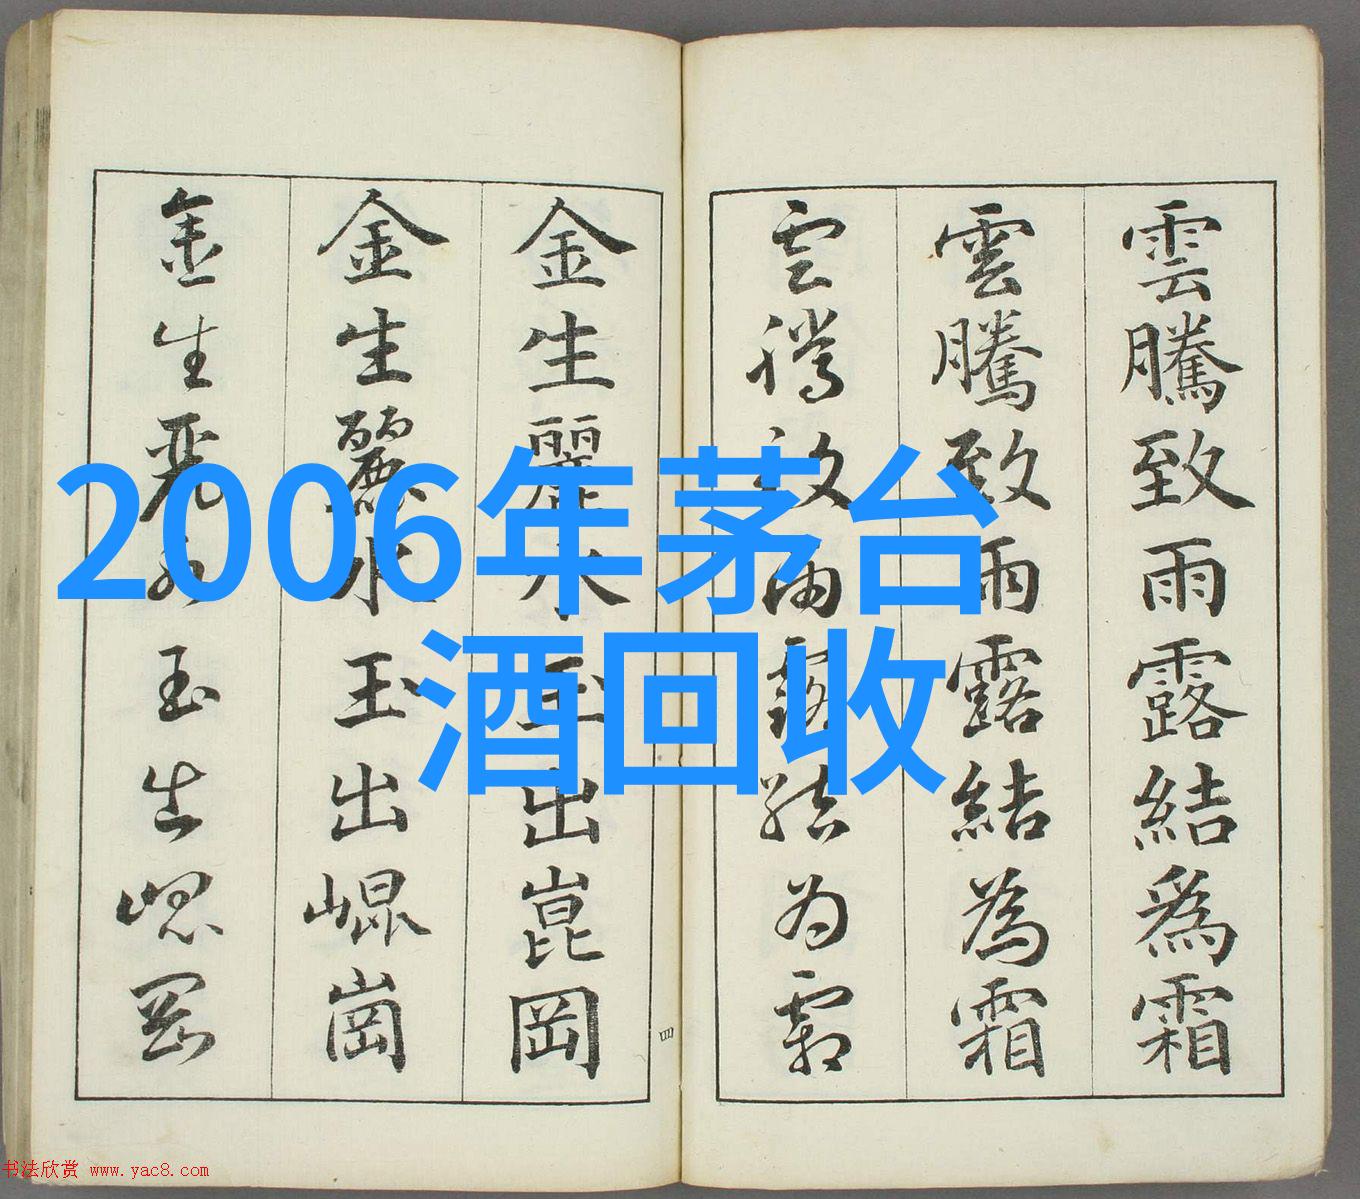 雲騰致雨露結爲霜
雲騰致雨露結為霜
雲騰致雨露結为霜
金生麗水玉出崑岡
金生麗水玉出崐崗
金生麗水玉出崐岡
四
2006年茅台
酒回收
书法欣赏 www.yac8.com